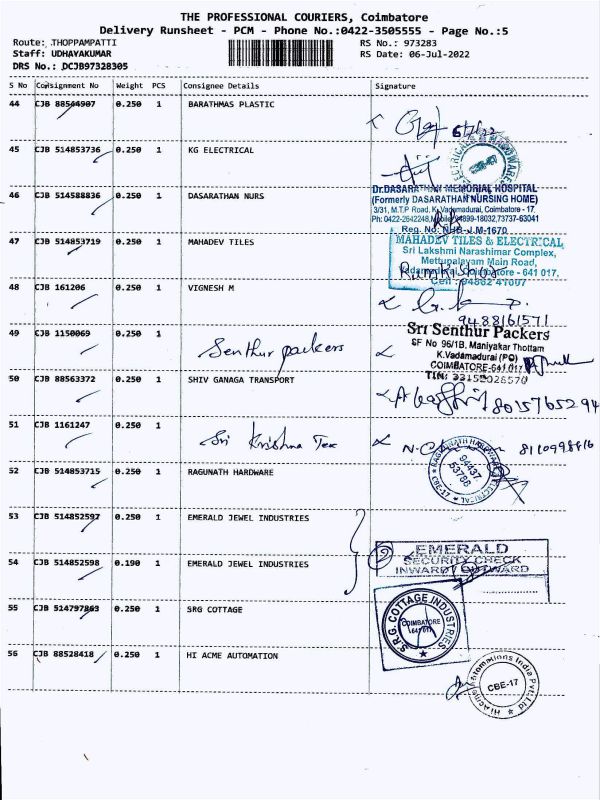 THE PROFESSIONAL COURIERS, Coimbatore
Delivery Runsheet - PCM - Phone No.:0422-3505555 - Page No.:5
Route: THOPPAMPATTI RS No.: 973283
Staff: UDHAYAKUMAR RS Date: 06-Jul-2022
DRS No.: DCJB97328305
S No Consignment No Weight PCS Consignee Details Signature
44 CJB 88544907 0.250 1 BARATHMAS PLASTIC
6/7/22
45 CJB 514853736 0.250 1 KG ELECTRICAL
Dr.DASARATHAN MEMORIAL HOSPITAL
46 CJB 514588836 0.250 1 DASARATHAN NURS
(Formerly DASARATHAN NURSING HOME)
3/31, M.T.P. Road, K.Vadamadurai, Coimbatore - 17.
Ph: 0422-2642248, Mobile: 94899-18032,73737-63041
Reg. No: NHB-J.M-1670
47 CJB 514853719 0.250 1 MAHADEV TILES
MAHADEV TILES & ELECTRICAL
Sri Lakshmi Narashimar Complex,
Mettupalayam Main Road,
Vadamadurai, Coimbatore - 641 017.
Cell : 94882 41007
48 CJB 161206 0.250 1 VIGNESH M
9488161571
49 CJB 1150069 0.250 1 Senthur packers
Sri Senthur Packers
SF No 96/1B, Maniyakar Thottam
K.Vadamadurai (PO)
COIMBATORE-641 017
TIN: 33152026570
50 CJB 88563372 0.250 1 SHIV GANAGA TRANSPORT
8015765294
51 CJB 1161247 0.250 1 Sri Krishna Tex
8110998816
52 CJB 514853715 0.250 1 RAGUNATH HARDWARE
RAGUNATH HARDWARE
94437
53788
53 CJB 514852597 0.250 1 EMERALD JEWEL INDUSTRIES
54 CJB 514852598 0.190 1 EMERALD JEWEL INDUSTRIES
2
EMERALD
SECURITY CHECK
INWARD / OUTWARD
55 CJB 524797863 0.250 1 SRG COTTAGE
S.R.G. COTTAGE INDUSTRIES
COIMBATORE
641 017
56 CJB 88528418 0.250 1 HI ACME AUTOMATION
Hi Acme Automations India Pvt. Ltd
CBE-17